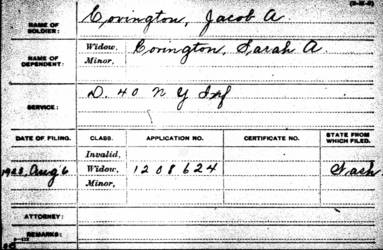 (3-M-6)
NAME OF SOLDIER: Covington, Jacob A.
NAME OF DEPENDENT: Widow, Covington, Sarah A.
Minor,
SERVICE: D. 40 N Y Inf
DATE OF FILING. CLASS. APPLICATION NO. CERTIFICATE NO. STATE FROM WHICH FILED.
Invalid,
Aug 6 Widow, 1208624 Wash
Minor,
ATTORNEY:
REMARKS: